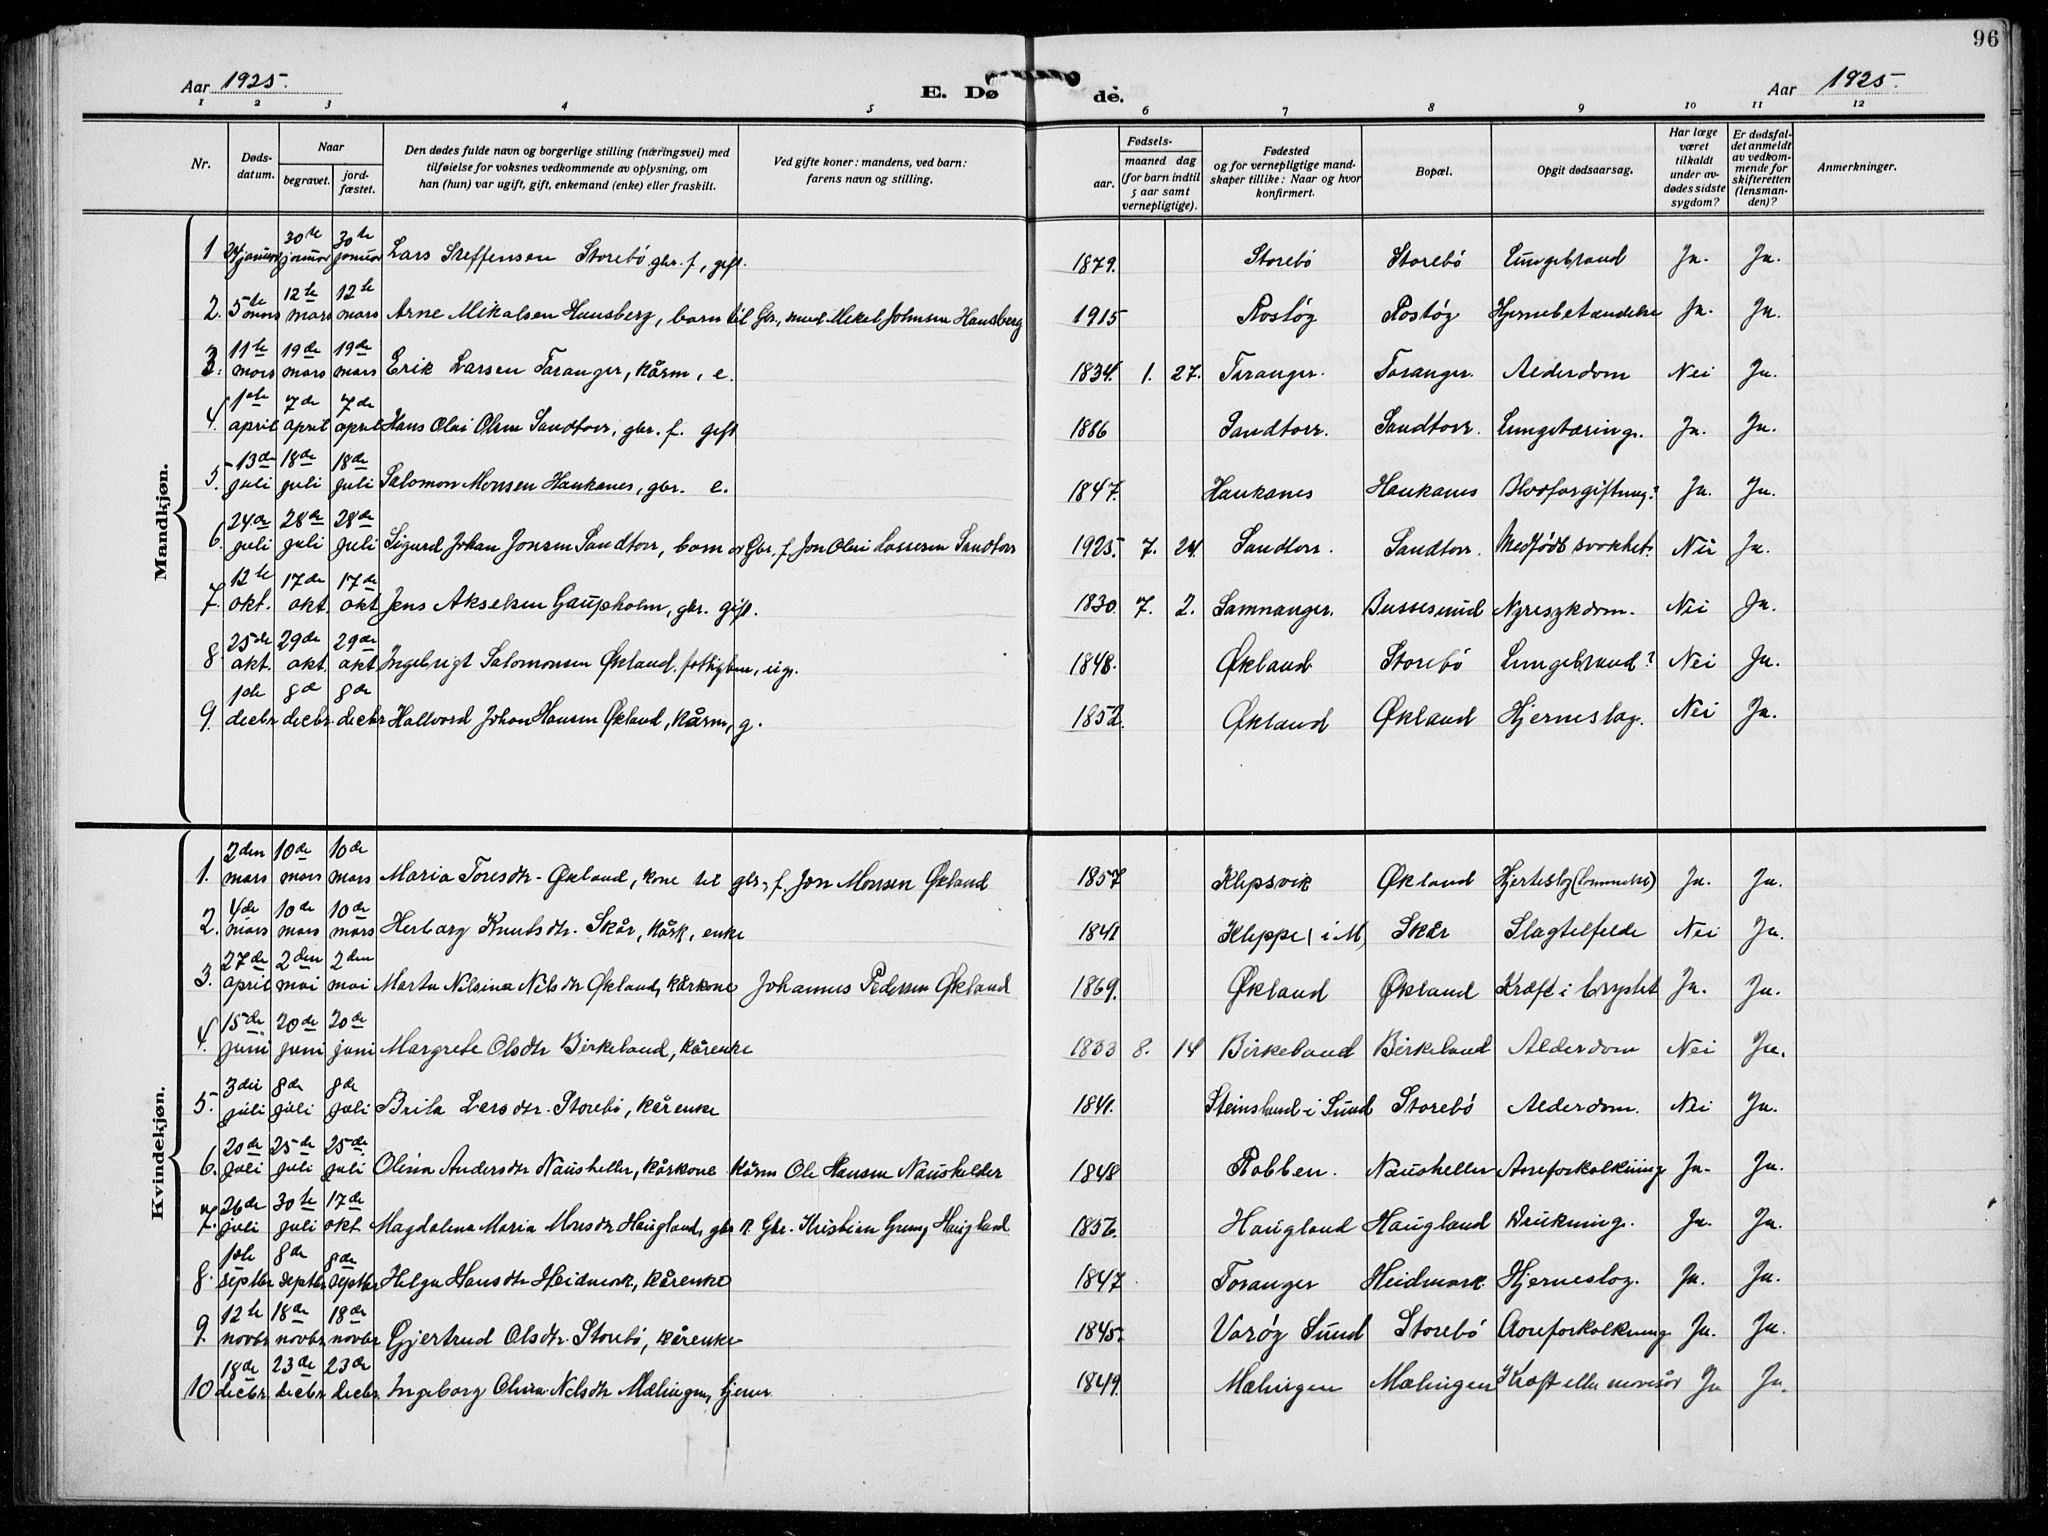 96
Aar 1925.
E. Døde.
Aar 1925.
1 2 3 4 5 6 7 8 9 10 11 12
Nr.
Døds-datum.
Naar
begravet.
jord-fæstet.
Den dødes fulde navn og borgerlige stilling (næringsvei) med tilføielse for voksnes vedkommende av oplysning, om han (hun) var ugift, gift, enkemand (enke) eller fraskilt.
Ved gifte koner: mandens, ved barn: farens navn og stilling.
Fødsels-
aar.
maaned dag (for barn indtil 5 aar samt vernepligtige).
Fødested og for vernepligtige mandskaper tillike: Naar og hvor konfirmert.
Bopæl.
Opgit dødsaarsag.
Har læge været tilkaldt under avdødes sidste sygdom?
Er dødsfaldet anmeldt av vedkommende for skifteretten (lensmanden)?
Anmerkninger.
Mandkjøn.
1 24 januar 30te januar 30te januar Lars Steffensen Storebø gbr. f, gift. 1879. Storebø Storebø Lungebrand Ja. Ja.
2. 5te mars 12te mars 12te mars Arne Mikalsen Hansberg, barn til Gbr., Mikal Johnsen Hansberg 1915 Rostøy Rostøy Hjernebetændelse Ja. Ja.
3. 11te mars 19de mars 19de mars Erik Larsen Foranger, kårm, e. 1834. 1. 27. Foranger. Foranger. Alderdom Nei Ja.
4. 1ste april 7de april 7de april Hans Olai Olsen Sandtorr, gbr. f. gift 1886 Sandtorr. Sandtorr. Lungetæring. Ja. Ja.
5. 13de juli 18de juli 18de juli Salomon Monsen Haukanes, gbr. e. 1847. Haukanes Haukanes Blodforgiftning? Ja. Ja.
6. 24de juli 28de juli 28de juli Sigurd Johan Jonsen Sandtorr, barn av Gbr. f. Jon Olai Lassesen Sandtorr 1925. 7. 24. Sandtorr. Sandtorr. Medfødt svakhet. Nei Ja.
7. 12te okt. 17de okt. 17de okt Jens Akselsen Gaupholm, gbr. gift. 1830. 7. 2. Samnanger. Bussesund Nyresykdom. Nei Ja.
8. 25de okt. 29de okt. 29de okt Ingebrigt Salomonsen Økland, ug. 1848. Økland Storebø Lungebrand? Nei Ja.
9. 1ste decbr 8de decbr. 8de decbr Hallvard Johan Hansen Økland, kårm, g. 1852. Økland Økland Hjerneslag. Nei Ja.
Kvindekjøn.
1. 2den mars 10de mars 10de mars Maria Toresdtr. Økland, kone til gbr. f. Jon Monsen Økland 1857 Klepsvik Økland Hjerteslag Ja. Ja.
2. 4de mars 10de mars 10de mars Herborg Knutsdtr. Skår, kårk, enke 1841 Kleppe i M. Skår Slagtilfelde Nei Ja.
3. 27de april 2den mai 2den mai Marta Nilsina Nilsdtr Økland, kårkone Johannes Pedersen Økland 1869. Økland Økland Kræft i brystet Ja. Ja.
4. 15de juni 20de juni 20de juni Margrete Olsdtr Birkeland, kårenke 1833 8. 14 Birkeland Birkeland Alderdom Nei Ja.
5. 3die juli 8de juli 8de juli Brita Larsdtr. Storebø, kårenke 1841. Steinsland i Sund Storebø Alderdom. Nei Ja.
6. 20de juli 25de juli 25de juli Olina Andersdtr Nausheller, kårkone kårm Ole Hansen Nausheller 1848 Robben. Nausheller Aareforkalkning Ja. Ja.
7. 26de juli 30te juli 17de okt Magdalena Maria Monsdtr Haugland, Gbr. Kristian Grung Haugland 1856. Haugland Haugland Drukning. Ja. Ja.
8. 1ste septbr 8de septbr 8de septbr Helga Hansdtr Heidmark, kårenke 1847. Foranger Heidmark Hjerneslag. Ja. Ja.
9. 12te novbr. 18de novbr. 18de novbr Gjertrud Olsdtr. Storebø, kårenke 1845. Varøy Sund Storebø Aareforkalkning Ja. Ja.
10 18de decbr. 23de decbr. 23de decbr. Ingeborg Olina Nilsdtr Mælingen, tjener 1849. Mælingen Mælingen Kræft eller mavesår Ja Ja.